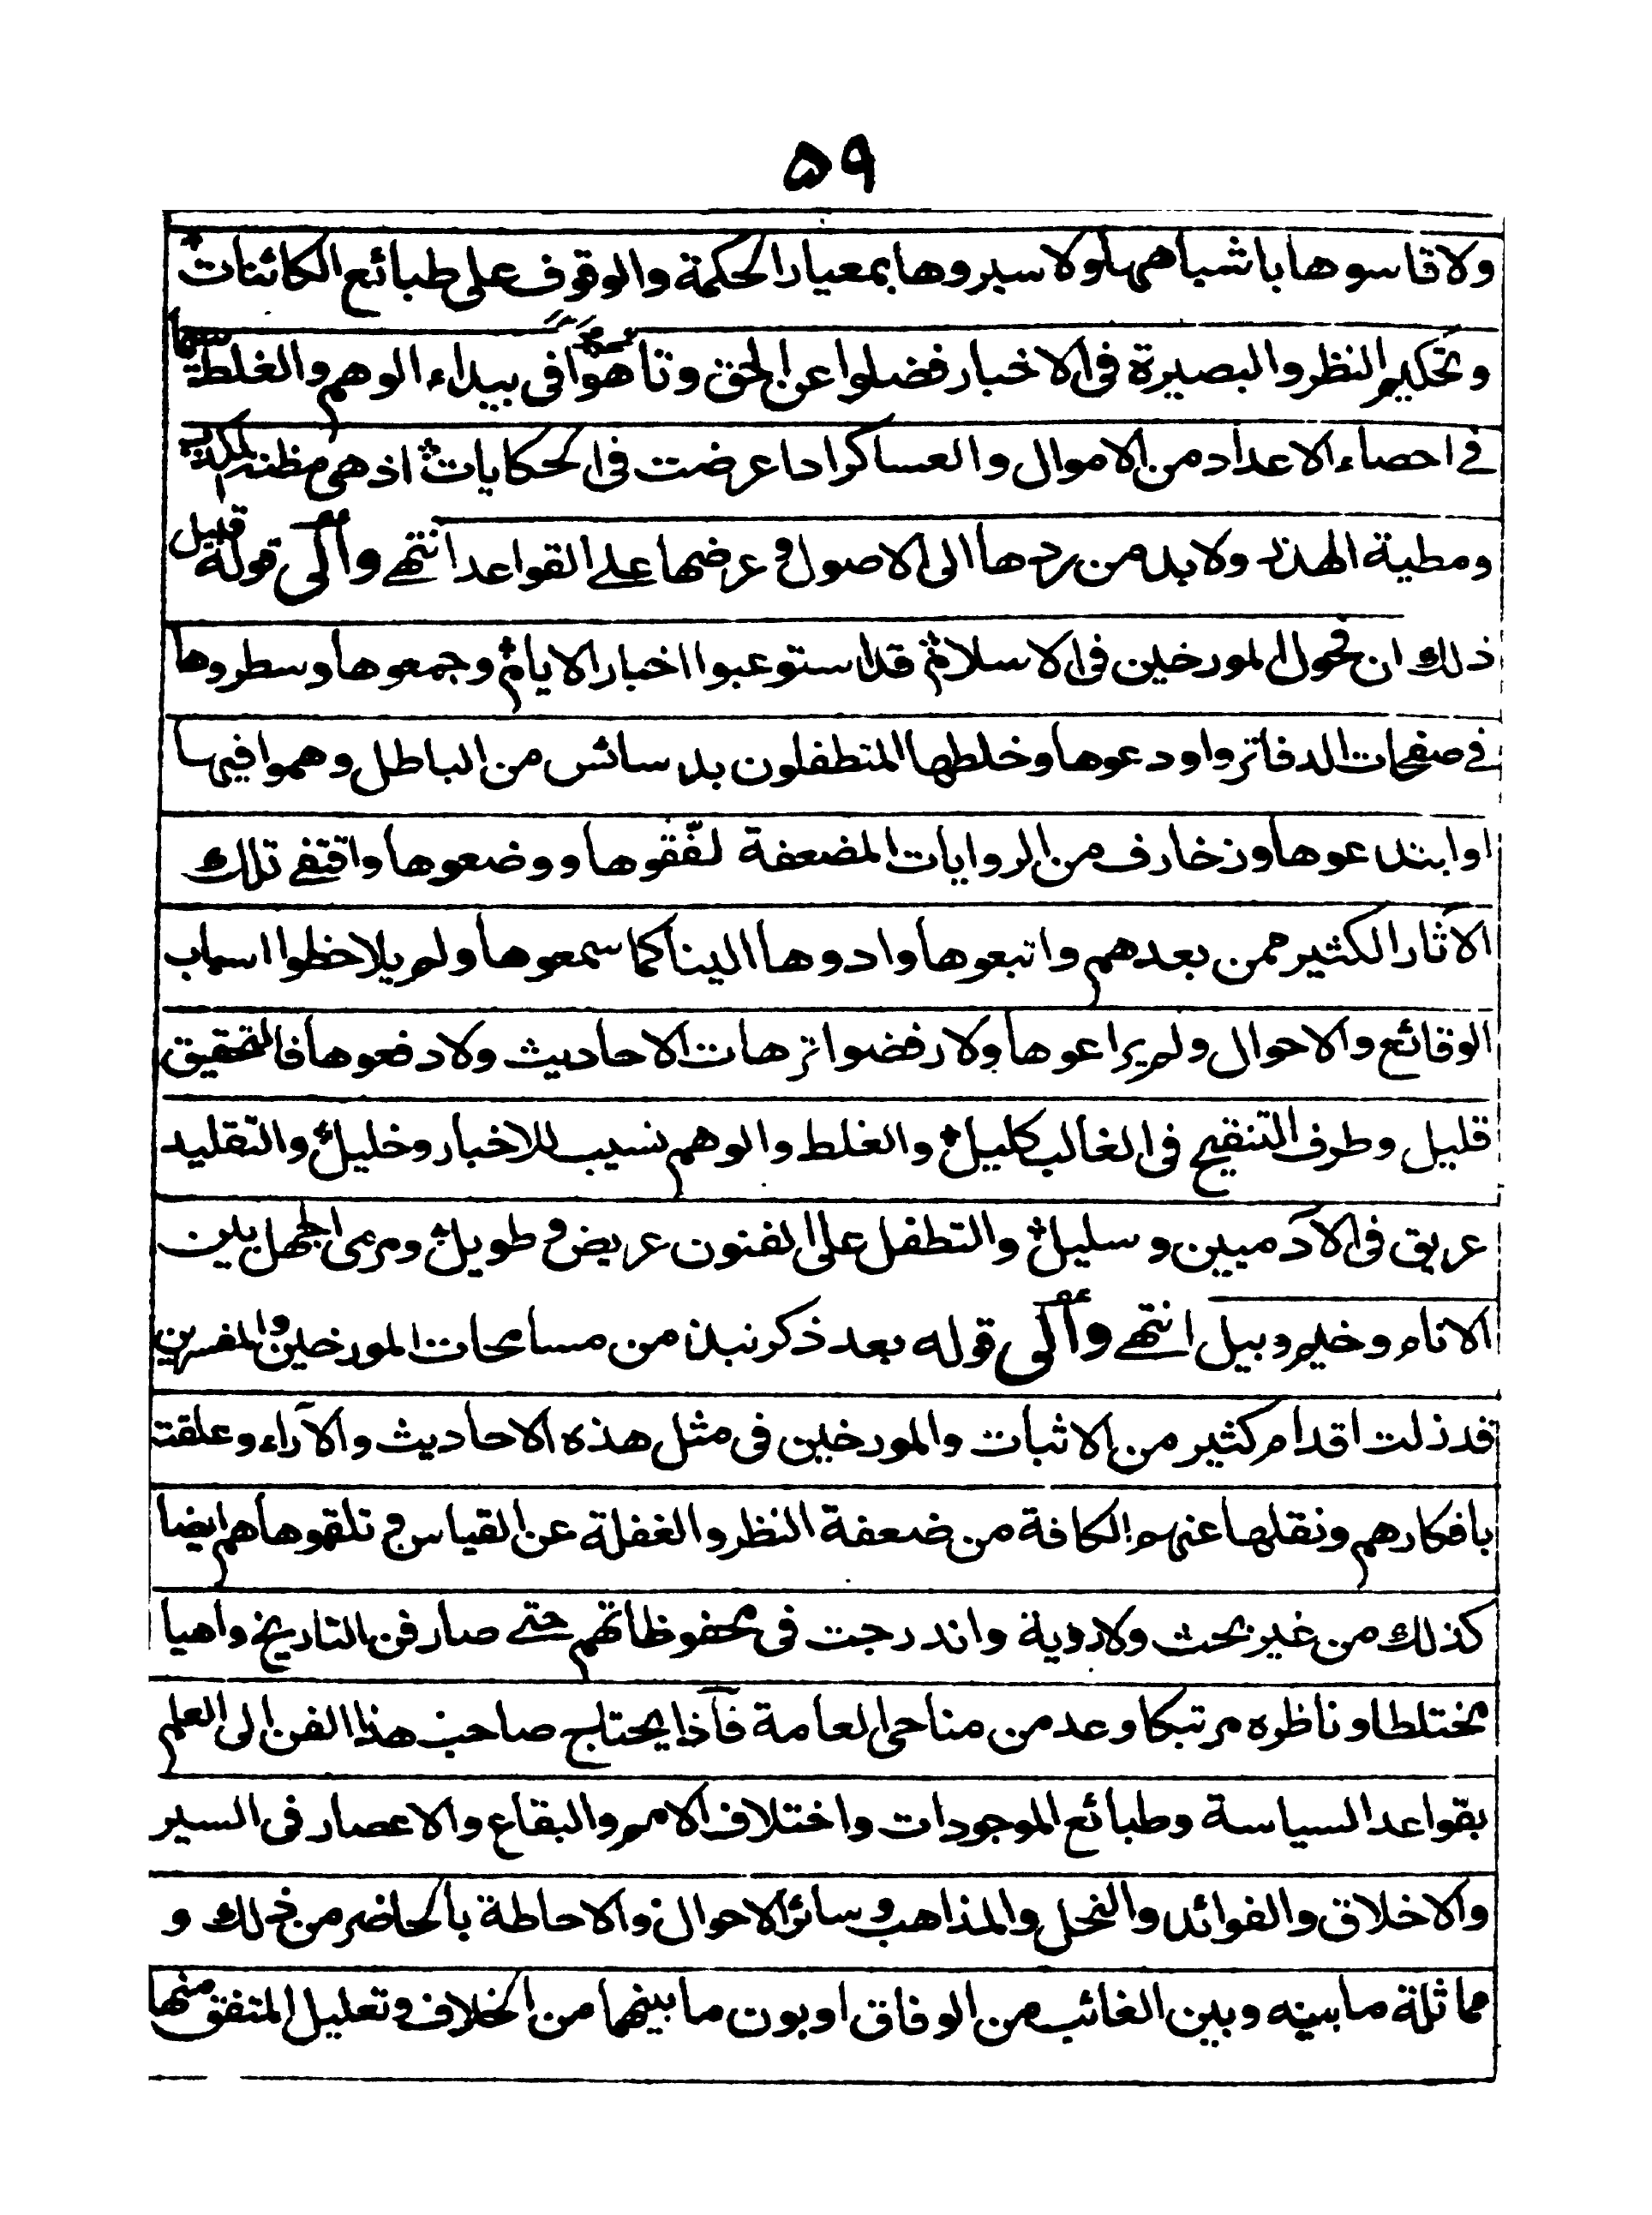 ٥٩
ولا قاسوها باشباهها ولا سبروها بمعيار الحكمة والوقوف على طبائع الكائنات
وتحكيم النظر والبصيرة فى الاخبار فضلوا عن الحق وتاهوا فى بيداء الوهم والغلط سيما
فے احصاء الاعداد من الاموال والعساكر اذا عرضت فى الحكايات اذ هى مظنة الكذب
ومطية الهذر ولا بد من ردها الى الاصول و عرضها علے القواعد انتهے والى قوله قبيل
ذلك ان فحول المورخين فى الاسلام قد استوعبوا اخبار الايام وجمعوها وسطروها
فے صفحات الدفاتر واودعوها وخلطها المتطفلون بدسائس من الباطل وهموا فيها
او ابتدعوها وزخارف من الروايات المضعفة لفّقوها ووضعوها واقتفے تلك
الآثار الكثير ممن بعدهم واتبعوها وادوها الينا كما سمعوها ولم يلاحظوا اسباب
الوقائع والاحوال ولم يراعوها ولا رفضوا ترهات الاحاديث ولا دفعوها فالتحقيق
قليل وطرف التنقيح فى الغالب كليل والغلط والوهم نسيب للاخبار وخليل والتقليد
عريق فى الآدميين وسليل والتطفل على الفنون عريض و طويل ومرعى الجهل بين
الانام وخيم وبيل انتهے والى قوله بعد ذكر نبذ من مسامحات المورخين والمفسرين
قد زلت اقدام كثير من الاثبات والمورخين فى مثل هذه الاحاديث والآراء وعلقت
بافكارهم ونقلها عنهم الكافة من ضعفة النظر والغفلة عن القياس و تلقوها هم ايضا
كذلك من غير بحث ولا روية واندرجت فى محفوظاتهم حتے صار فن التاريخ واهيا
مختلطا وناظره مرتبكا وعد من مناحى العامة فاذا يحتاج صاحب هذا الفن الى العلم
بقواعد السياسة وطبائع الموجودات واختلاف الامم والبقاع والاعصار فى السير
والاخلاق والفوائد والنحل والمذاهب و سائر الاحوال والاحاطة بالحاضر من ذلك و
مماثلة ما بينه وبين الغائب من الوفاق او بون ما بينهما من الخلاف و تعليل المتفق منها